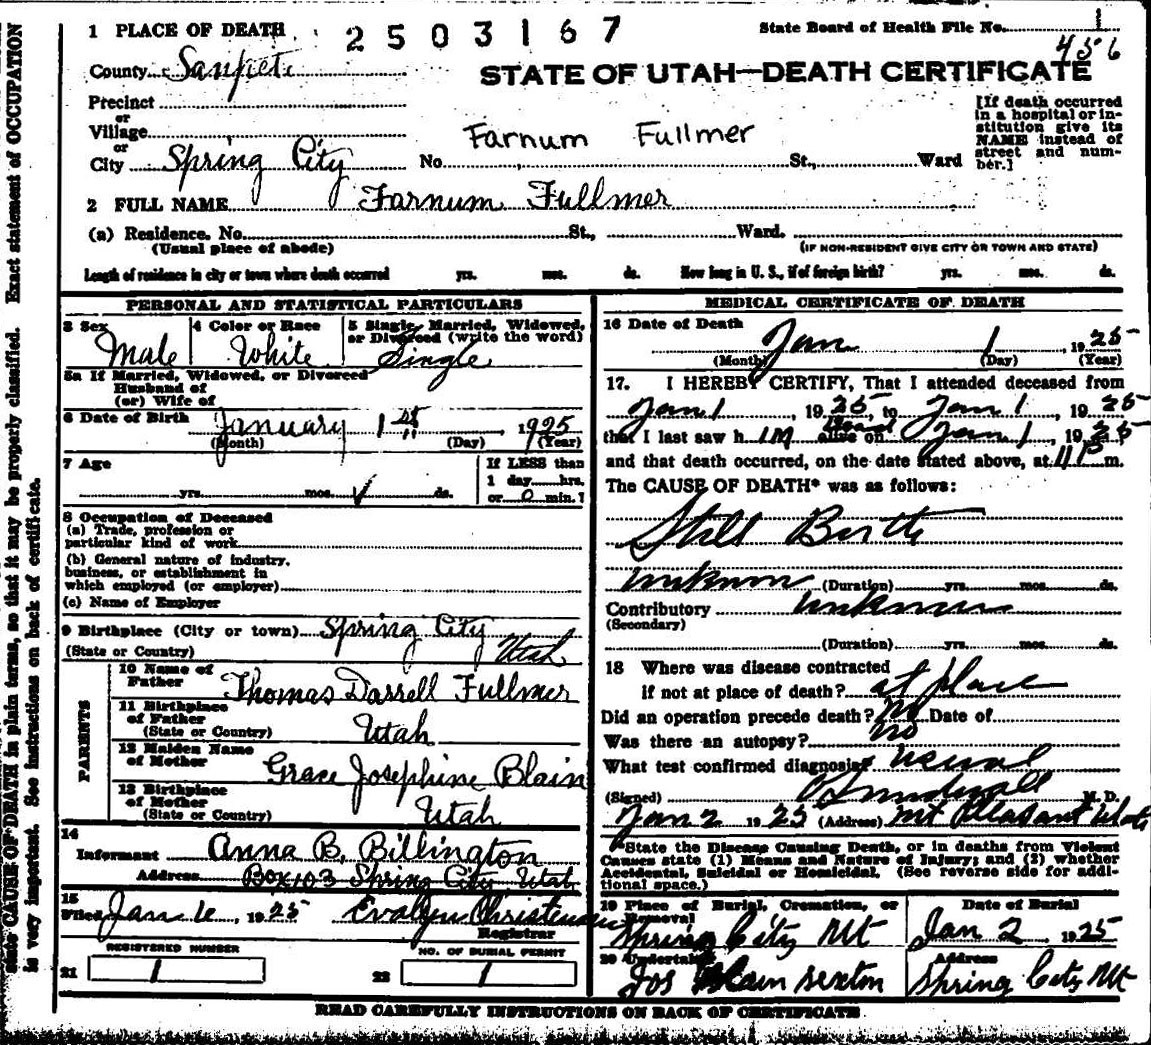 1 PLACE OF DEATH 2503167 State Board of Health File No. 1
456
County Sanpete
STATE OF UTAH—DEATH CERTIFICATE
Precinct
or
Village
or
City Spring City No. St., Ward
Farnum Fullmer
[If death occurred
in a hospital or in-
stitution give its
NAME instead of
street and num-
ber.]
2 FULL NAME Farnum Fullmer
(a) Residence. No. St., Ward.
(Usual place of abode) (IF NON-RESIDENT GIVE CITY OR TOWN AND STATE)
Length of residence in city or town where death occurred yrs. mos. ds. How long in U. S., if of foreign birth? yrs. mos. ds.
PERSONAL AND STATISTICAL PARTICULARS
3 Sex 4 Color or Race 5 Single, Married, Widowed,
or Divorced (write the word)
Male White Single
5a If Married, Widowed, or Divorced
Husband of
(or) Wife of
6 Date of Birth January 1st 1925
(Month) (Day) (Year)
7 Age If LESS than
1 day hrs.
yrs. mos. ds. or 0 min.?
8 Occupation of Deceased
(a) Trade, profession or
particular kind of work
(b) General nature of industry,
business, or establishment in
which employed (or employer)
(c) Name of Employer
9 Birthplace (City or town) Spring City
(State or Country) Utah
PARENTS
10 Name of
Father Thomas Darrell Fullmer
11 Birthplace
of Father
(State or Country) Utah
12 Maiden Name
of Mother Grace Josephine Blain
13 Birthplace
of Mother
(State or Country) Utah
14
Informant Anna B. Billington
Address Box 103 Spring City Utah
15
Filed Jan 6, 1925 Evalyn Christensen
Registrar
REGISTERED NUMBER NO. OF BURIAL PERMIT
21 1 22 1
MEDICAL CERTIFICATE OF DEATH
16 Date of Death Jan 1, 1925
(Month) (Day) (Year)
17. I HEREBY CERTIFY, That I attended deceased from
Jan 1, 1925, to Jan 1, 1925
that I last saw him alive on Dead Jan 1, 1925
and that death occurred, on the date stated above, at 11 P m.
The CAUSE OF DEATH* was as follows:
Still Birth
unknown (Duration) yrs. mos. ds.
Contributory unknown
(Secondary)
(Duration) yrs. mos. ds.
18 Where was disease contracted
if not at place of death? at place
Did an operation precede death? no Date of
Was there an autopsy? no
What test confirmed diagnosis? usual
(Signed) Sundwall M. D.
Jan 2 1925 (Address) Mt Pleasant Utah
*State the Disease Causing Death, or in deaths from Violent
Causes state (1) Means and Nature of Injury; and (2) whether
Accidental, Suicidal or Homicidal. (See reverse side for addi-
tional space.)
19 Place of Burial, Cremation, or
Removal
Spring City Ut
Date of Burial
Jan 2, 1925
20 Undertaker
Jos Blain sexton
Address
Spring City Ut
READ CAREFULLY INSTRUCTIONS ON BACK OF CERTIFICATE
state CAUSE OF DEATH in plain terms, so that it may be properly classified. Exact statement of OCCUPATION
is very important. See instructions on back of certificate.